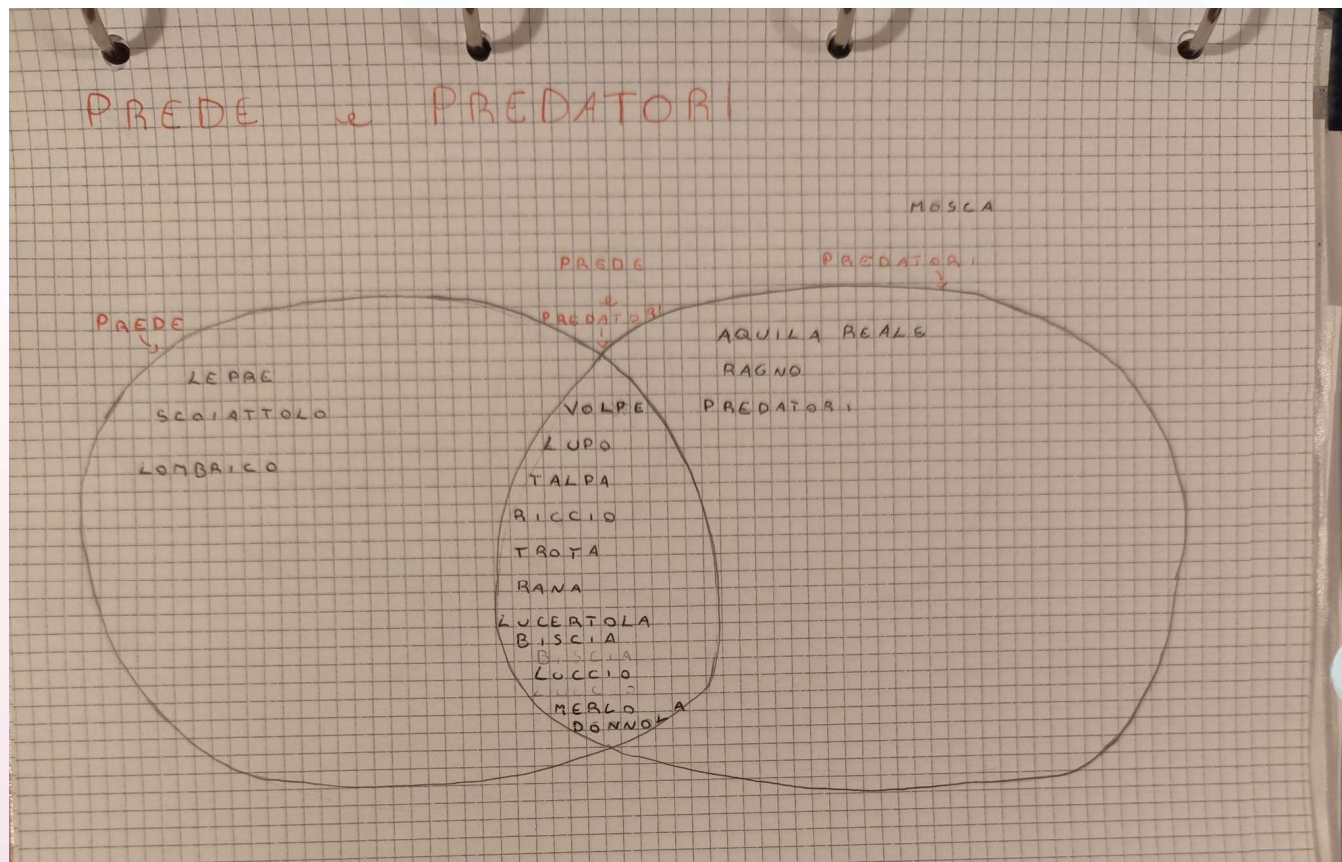 PREDE e PREDATORI
MOSCA
PREDE
e
PREDATORI
PREDATORI
PREDE
LEPRE
SCOIATTOLO
LOMBRICO
VOLPE
LUPO
TALPA
RICCIO
TROTA
RANA
LUCERTOLA
BISCIA
BISCIA
LUCCIO
LUCCIO
MERLO
DONNOLA
AQUILA REALE
RAGNO
PREDATORI